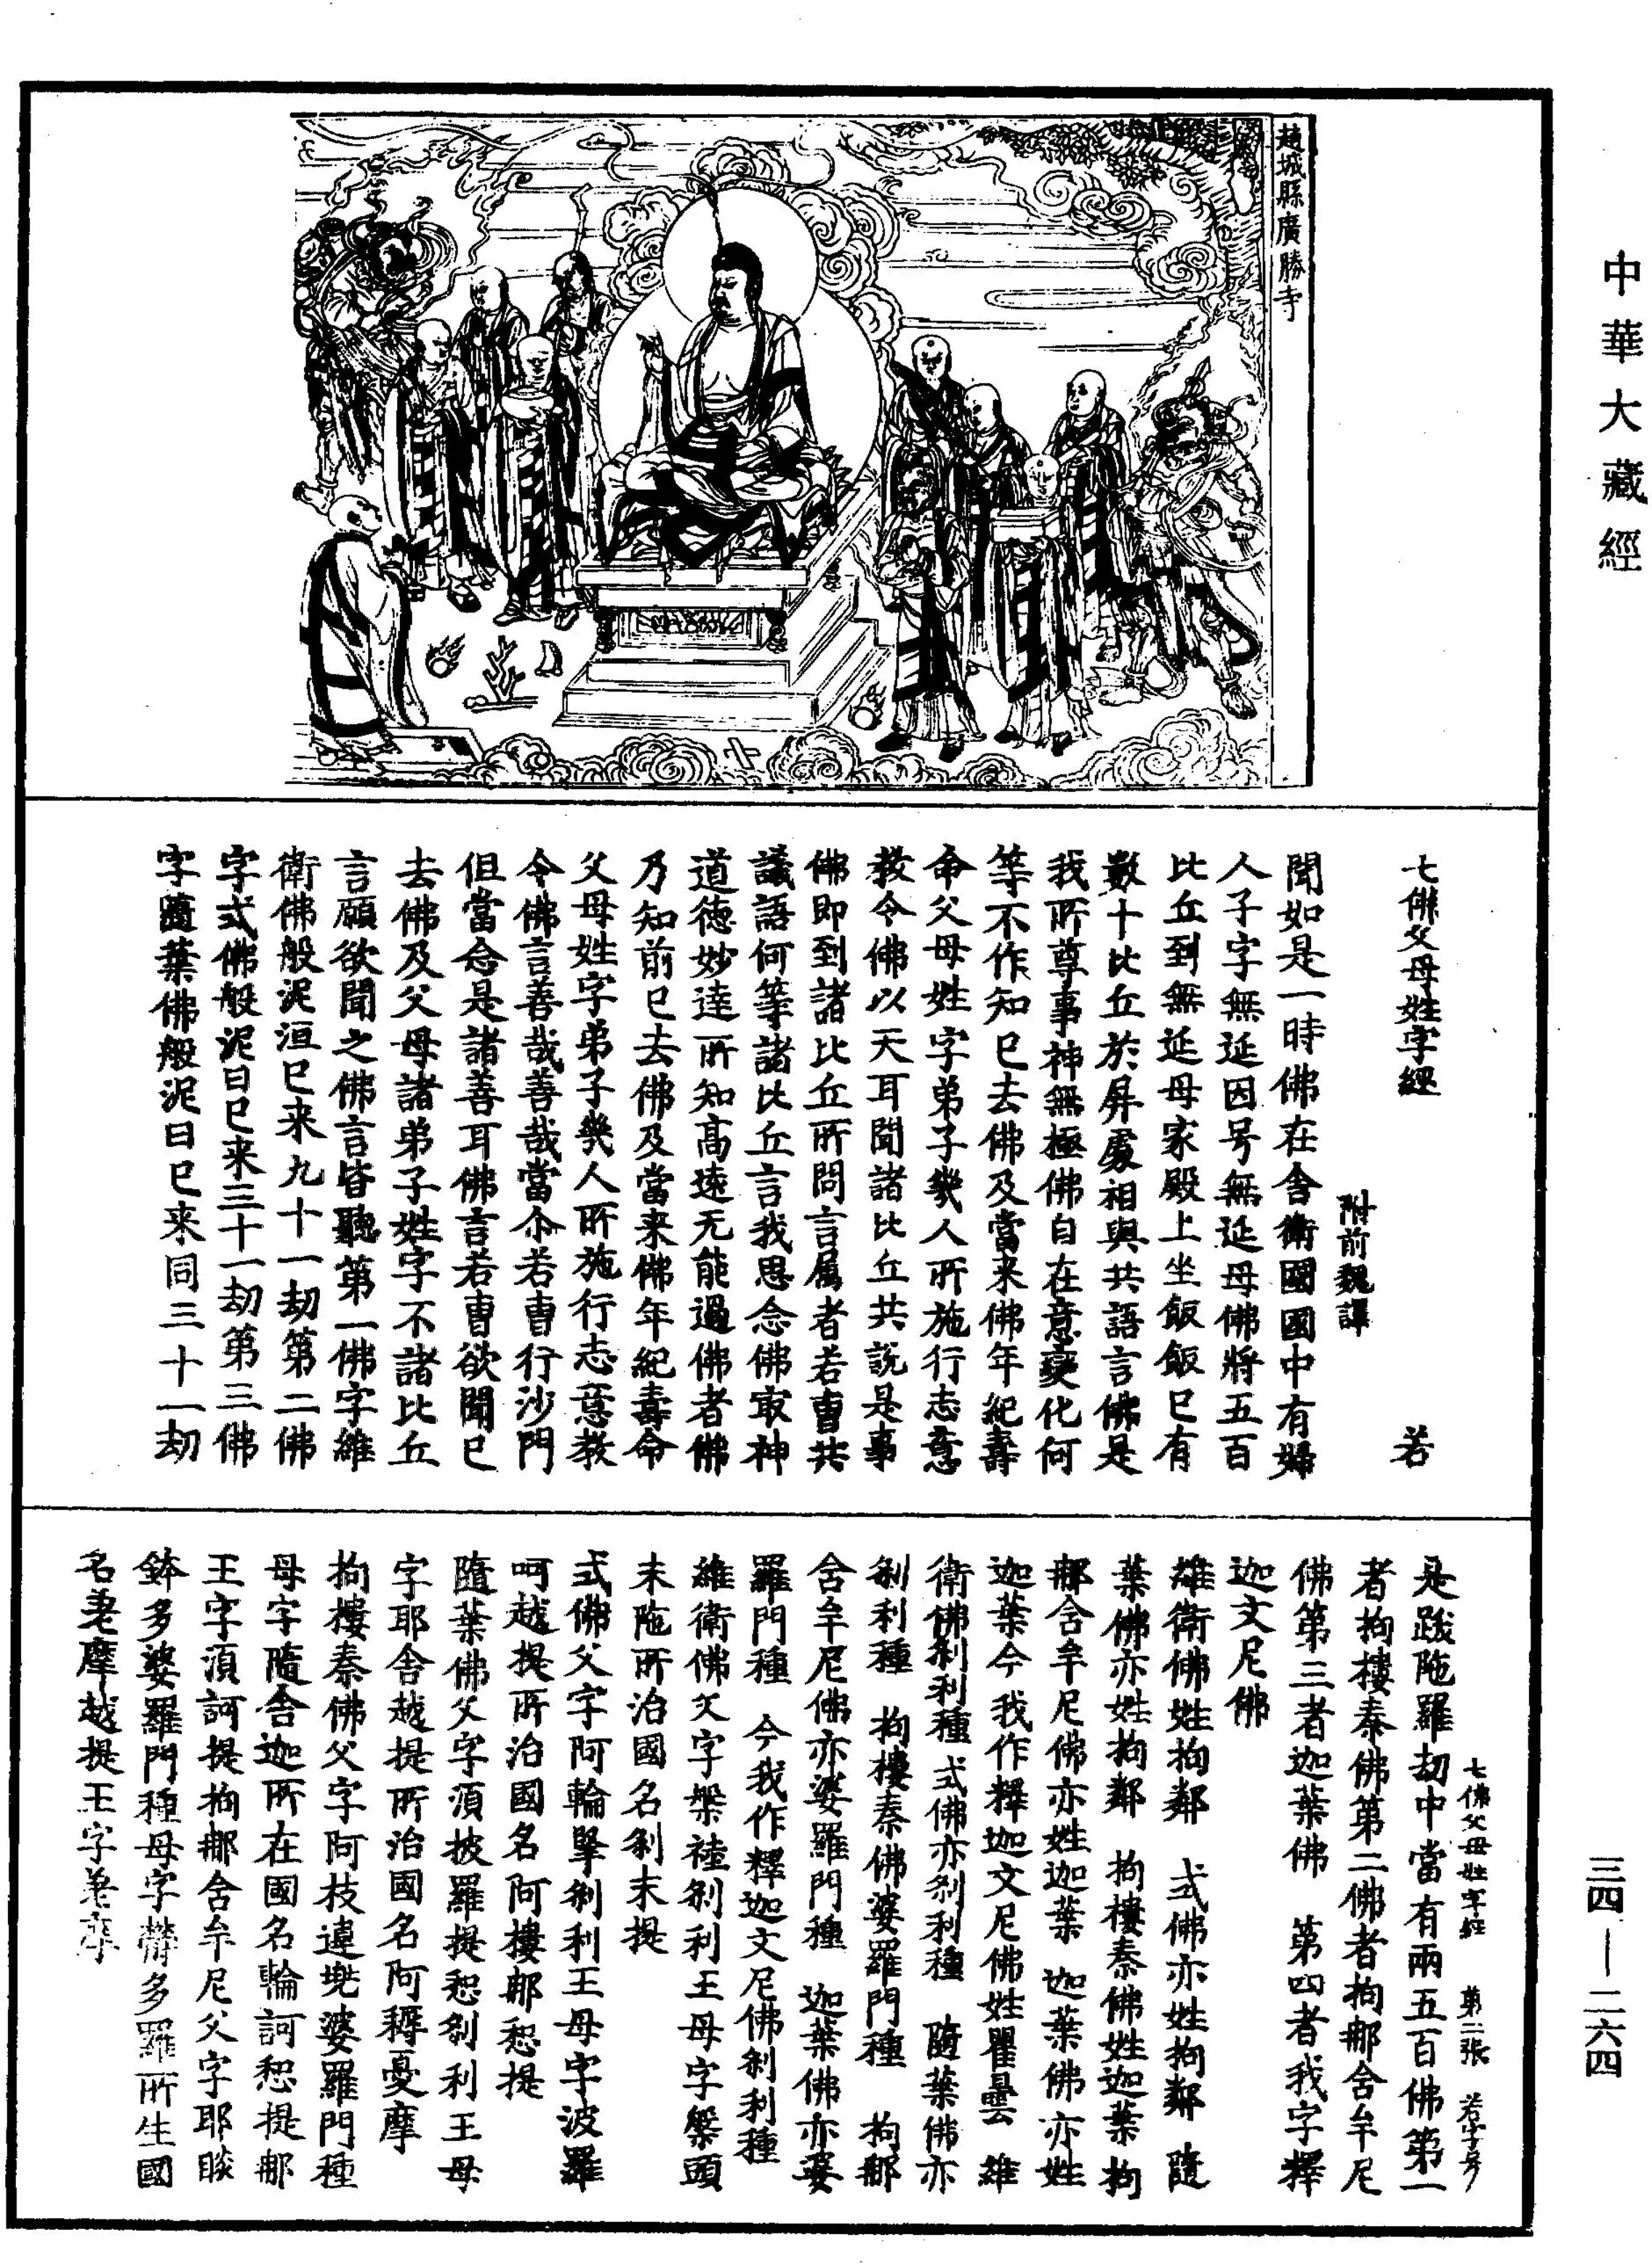 中華大藏經
三四—二六四
趙城縣廣勝寺
七佛父母姓字經 若
附前魏譯
聞如是一時佛在舍衛國國中有婦
人子字無延因号無延母佛將五百
比丘到無延母家殿上坐飯飯已有
數十比丘於屏處相與共語言佛是
我所尊事神無極佛自在意變化何
等不作知已去佛及當来佛年紀壽
命父母姓字弟子幾人所施行志意
教令佛以天耳聞諸比丘共說是事
佛即到諸比丘所問言屬者若曹共
議語何等諸比丘言我思念佛㝡神
道德妙達所知高遠无能過佛者佛
乃知前已去佛及當来佛年紀壽命
父母姓字弟子幾人所施行志意教
令佛言善哉善哉當尒若曹行沙門
但當念是諸善耳佛言若曹欲聞已
去佛及父母諸弟子姓字不諸比丘
言願欲聞之佛言皆聽第一佛字維
衛佛般泥洹已来九十一劫第二佛
字式佛般泥曰已来三十一劫第三佛
字隨葉佛般泥曰已来同三十一劫
七佛父母姓字經 第二張 若字号
是跋陁羅劫中當有兩五百佛第一
者拘樓秦佛第二佛者拘那舍牟尼
佛第三者迦葉佛 第四者我字釋
迦文尼佛
維衛佛姓拘鄰 式佛亦姓拘鄰 隨
葉佛亦姓拘鄰 拘樓秦佛姓迦葉拘
那舍牟尼佛亦姓迦葉 迦葉佛亦姓
迦葉今我作釋迦文尼佛姓瞿曇 維
衛佛剎利種式佛亦剎利種 隨葉佛亦
剎利種 拘樓秦佛婆羅門種 拘那
舍牟尼佛亦婆羅門種 迦葉佛亦婆
羅門種 今我作釋迦文尼佛剎利種
維衛佛父字槃裱剎利王母字槃頭
末陁所治國名剎末提
式佛父字阿輪拏剎利王母字波羅
呵越提所治國名阿樓那惒提
隨葉佛父字須披羅提惒剎利王母
字耶舍越提所治國名阿耨憂摩
拘樓秦佛父字阿枝違兠婆羅門種
母字隨舍迦所在國名輪訶惒提那
王字須訶提拘那舍牟尼父字耶睒
鉢多婆羅門種母字欝多羅所生國
名差摩越提王字差摩